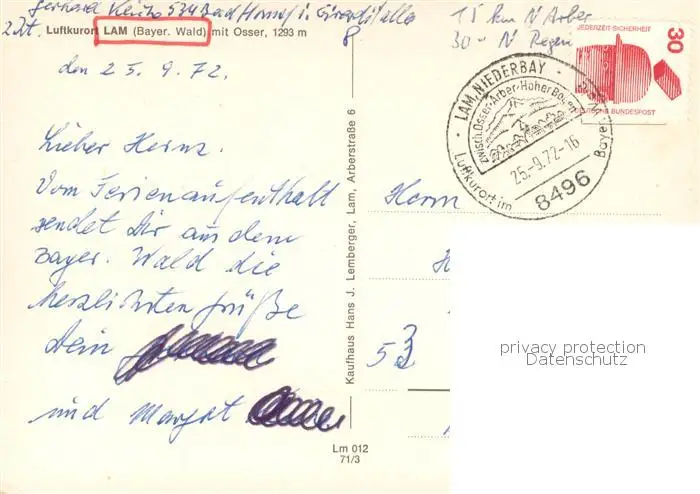 534 Bad Honnef
Luftkurort LAM (Bayer. Wald) mit Osser, 1293 m
den 25. 9. 72.
Lieber Heinz.
Vom Ferienaufenthalt
sendet Dir aus dem
Bayer. Wald die
herzlichsten Grüße
Dein
und Margret
Lm 012
71/3
Kaufhaus Hans J. Lemberger, Lam, Arberstraße 6
15 km N Arber
30 - N Regen
JEDERZEIT SICHERHEIT
30
DEUTSCHE BUNDESPOST
LAM, NIEDERBAY
zwisch. Osser-Arber-Hoher Bogen
25.-9.72-16
8496
Luftkurort im Bayer. Wald
Herrn
53
privacy protection
Datenschutz